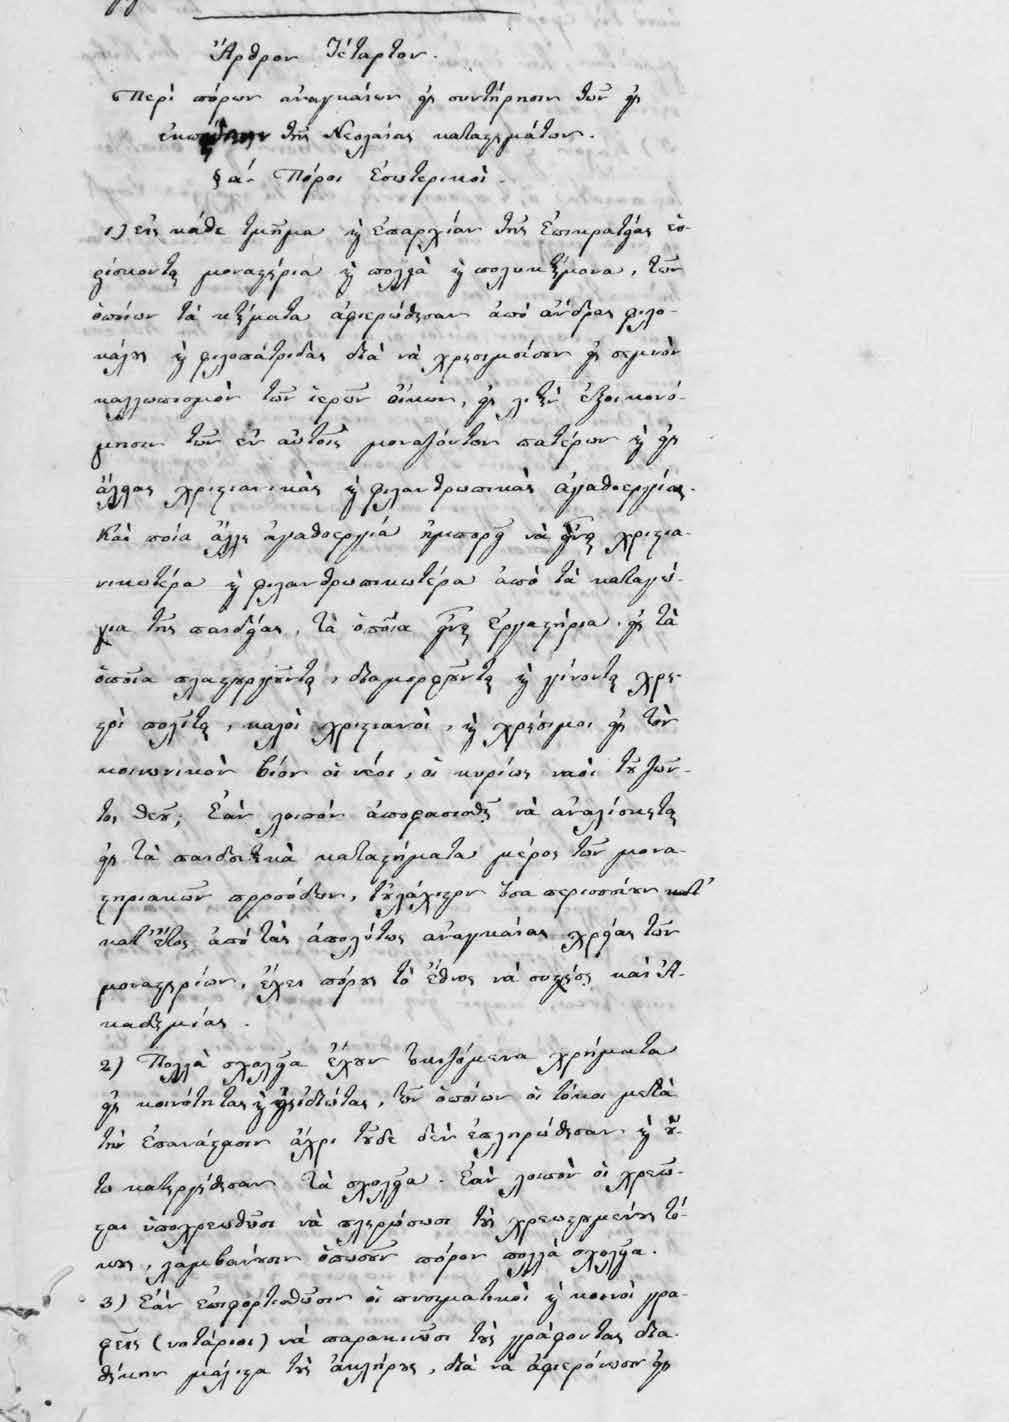 Ἄρθρον Τέταρτον.
Περὶ πόρων ἀναγκαίων εἰς συντήρησιν τῶν εἰς
τῆς Νεολαίας καταστημάτων.
§ α΄. Πόροι Ἐσωτερικοὶ.
1) εἰς κάθε τμῆμα καὶ ἐπαρχίαν τῆς Ἐπικρατείας εὑ-
ρίσκονται μοναστήρια καὶ πολλὰ καὶ πολυκτήμονα, τῶν
ὁποίων τὰ κτήματα ἀφιερώθησαν ἀπὸ ἄνδρας φιλο-
κάλους καὶ φιλοπάτριδας διὰ νὰ χρησιμεύσουν εἰς σεμνὸν
καλλωπισμὸν τῶν ἱερῶν οἴκων, εἰς λιτὴν ἐξοικονό-
μησιν τῶν ἐν αὐτοῖς μοναζόντων πατέρων καὶ εἰς
ἄλλας χριστιανικὰς καὶ φιλανθρωπικὰς ἀγαθοεργίας.
Καὶ ποία ἄλλη ἀγαθοεργία ἠμπορεῖ νὰ εἶναι χριστια-
νικωτέρα καὶ φιλανθρωπικωτέρα ἀπὸ τὰ καταγώ-
για τῆς παιδείας, τὰ ὁποῖα εἶναι ἐργαστήρια, εἰς τὰ
ὁποῖα πλαστουργοῦνται, διαμορφοῦνται καὶ γίνονται χρη-
στοὶ πολῖται, καλοὶ χριστιανοὶ, καὶ χρήσιμοι εἰς τὸν
κοινωνικὸν βίον οἱ νέοι, οἱ κυρίως ναοὶ τοῦ ζῶν-
τος Θεοῦ; Ἐὰν λοιπὸν ἀποφασισθῇ νὰ ἀναλίσκεται
εἰς τὰ παιδευτικὰ καταστήματα μέρος τῶν μονα-
στηριακῶν προσόδων, τοὐλάχιστον ὅσα περισσεύουν κατ᾽
κατ᾽ ἔτος ἀπὸ τὰς ἀπολύτως ἀναγκαίας χρείας τῶν
μοναστηρίων, ἔχει πόρους τὸ ἔθνος νὰ συστήσῃ καὶ Ἀ-
καδημίας.
2) Πολλὰ σχολεῖα ἔχουν τοκιζόμενα χρήματα
εἰς κοινότητας καὶ εἰς ἰδιώτας, τῶν ὁποίων οἱ τόκοι μετὰ
τὴν ἐπανάστασιν ἄχρι τοῦδε δὲν ἐπληρώθησαν καὶ οὕ-
τω κατηργήθησαν τὰ σχολεῖα. Ἐὰν λοιπὸν οἱ χρεῶ-
σται ὑποχρεωθῶσι νὰ πληρώσωσι τοὺς χρεωστουμένους τό-
κους, λαμβάνουσιν ὁπωσοῦν πόρον πολλὰ σχολεῖα.
3) Ἐὰν ἐπιφορτισθῶσιν οἱ πνευματικοὶ καὶ κοινοὶ γρα-
φεῖς (νοτάριοι) νὰ παρακινῶσι τοὺς γράφοντας δια-
θήκην μάλιστα τοὺς ἀκλήρους, διὰ νὰ ἀφιερόνωσιν εἰς